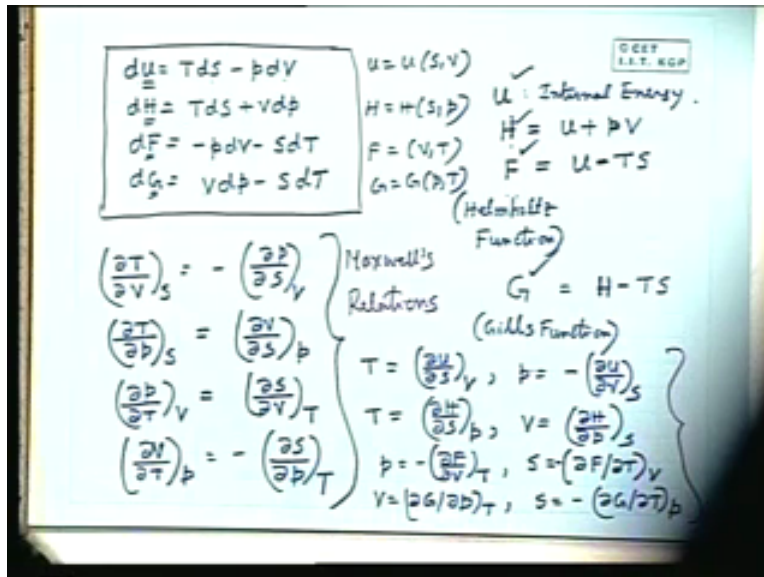 © CET
I.I.T. KGP
du = Tds - pdV
dH = Tds + Vdp
dF = -pdV - SdT
dG = Vdp - SdT
U = U(S,V)
H = H(S,p)
F = (V,T)
G = G(p,T)
U : Internal Energy.
H = U + pV
F = U - TS
(Helmholtz
Function)
G = H - TS
(Gibbs Function)
(∂T/∂V)_S = - (∂p/∂S)_V
(∂T/∂p)_S = (∂V/∂S)_p
(∂p/∂T)_V = (∂S/∂V)_T
(∂V/∂T)_p = - (∂S/∂p)_T
Maxwell's
Relations
T = (∂U/∂S)_V, p = - (∂U/∂V)_S
T = (∂H/∂S)_p, V = (∂H/∂p)_S
p = - (∂F/∂V)_T, S = - (∂F/∂T)_V
V = (∂G/∂p)_T, S = - (∂G/∂T)_p